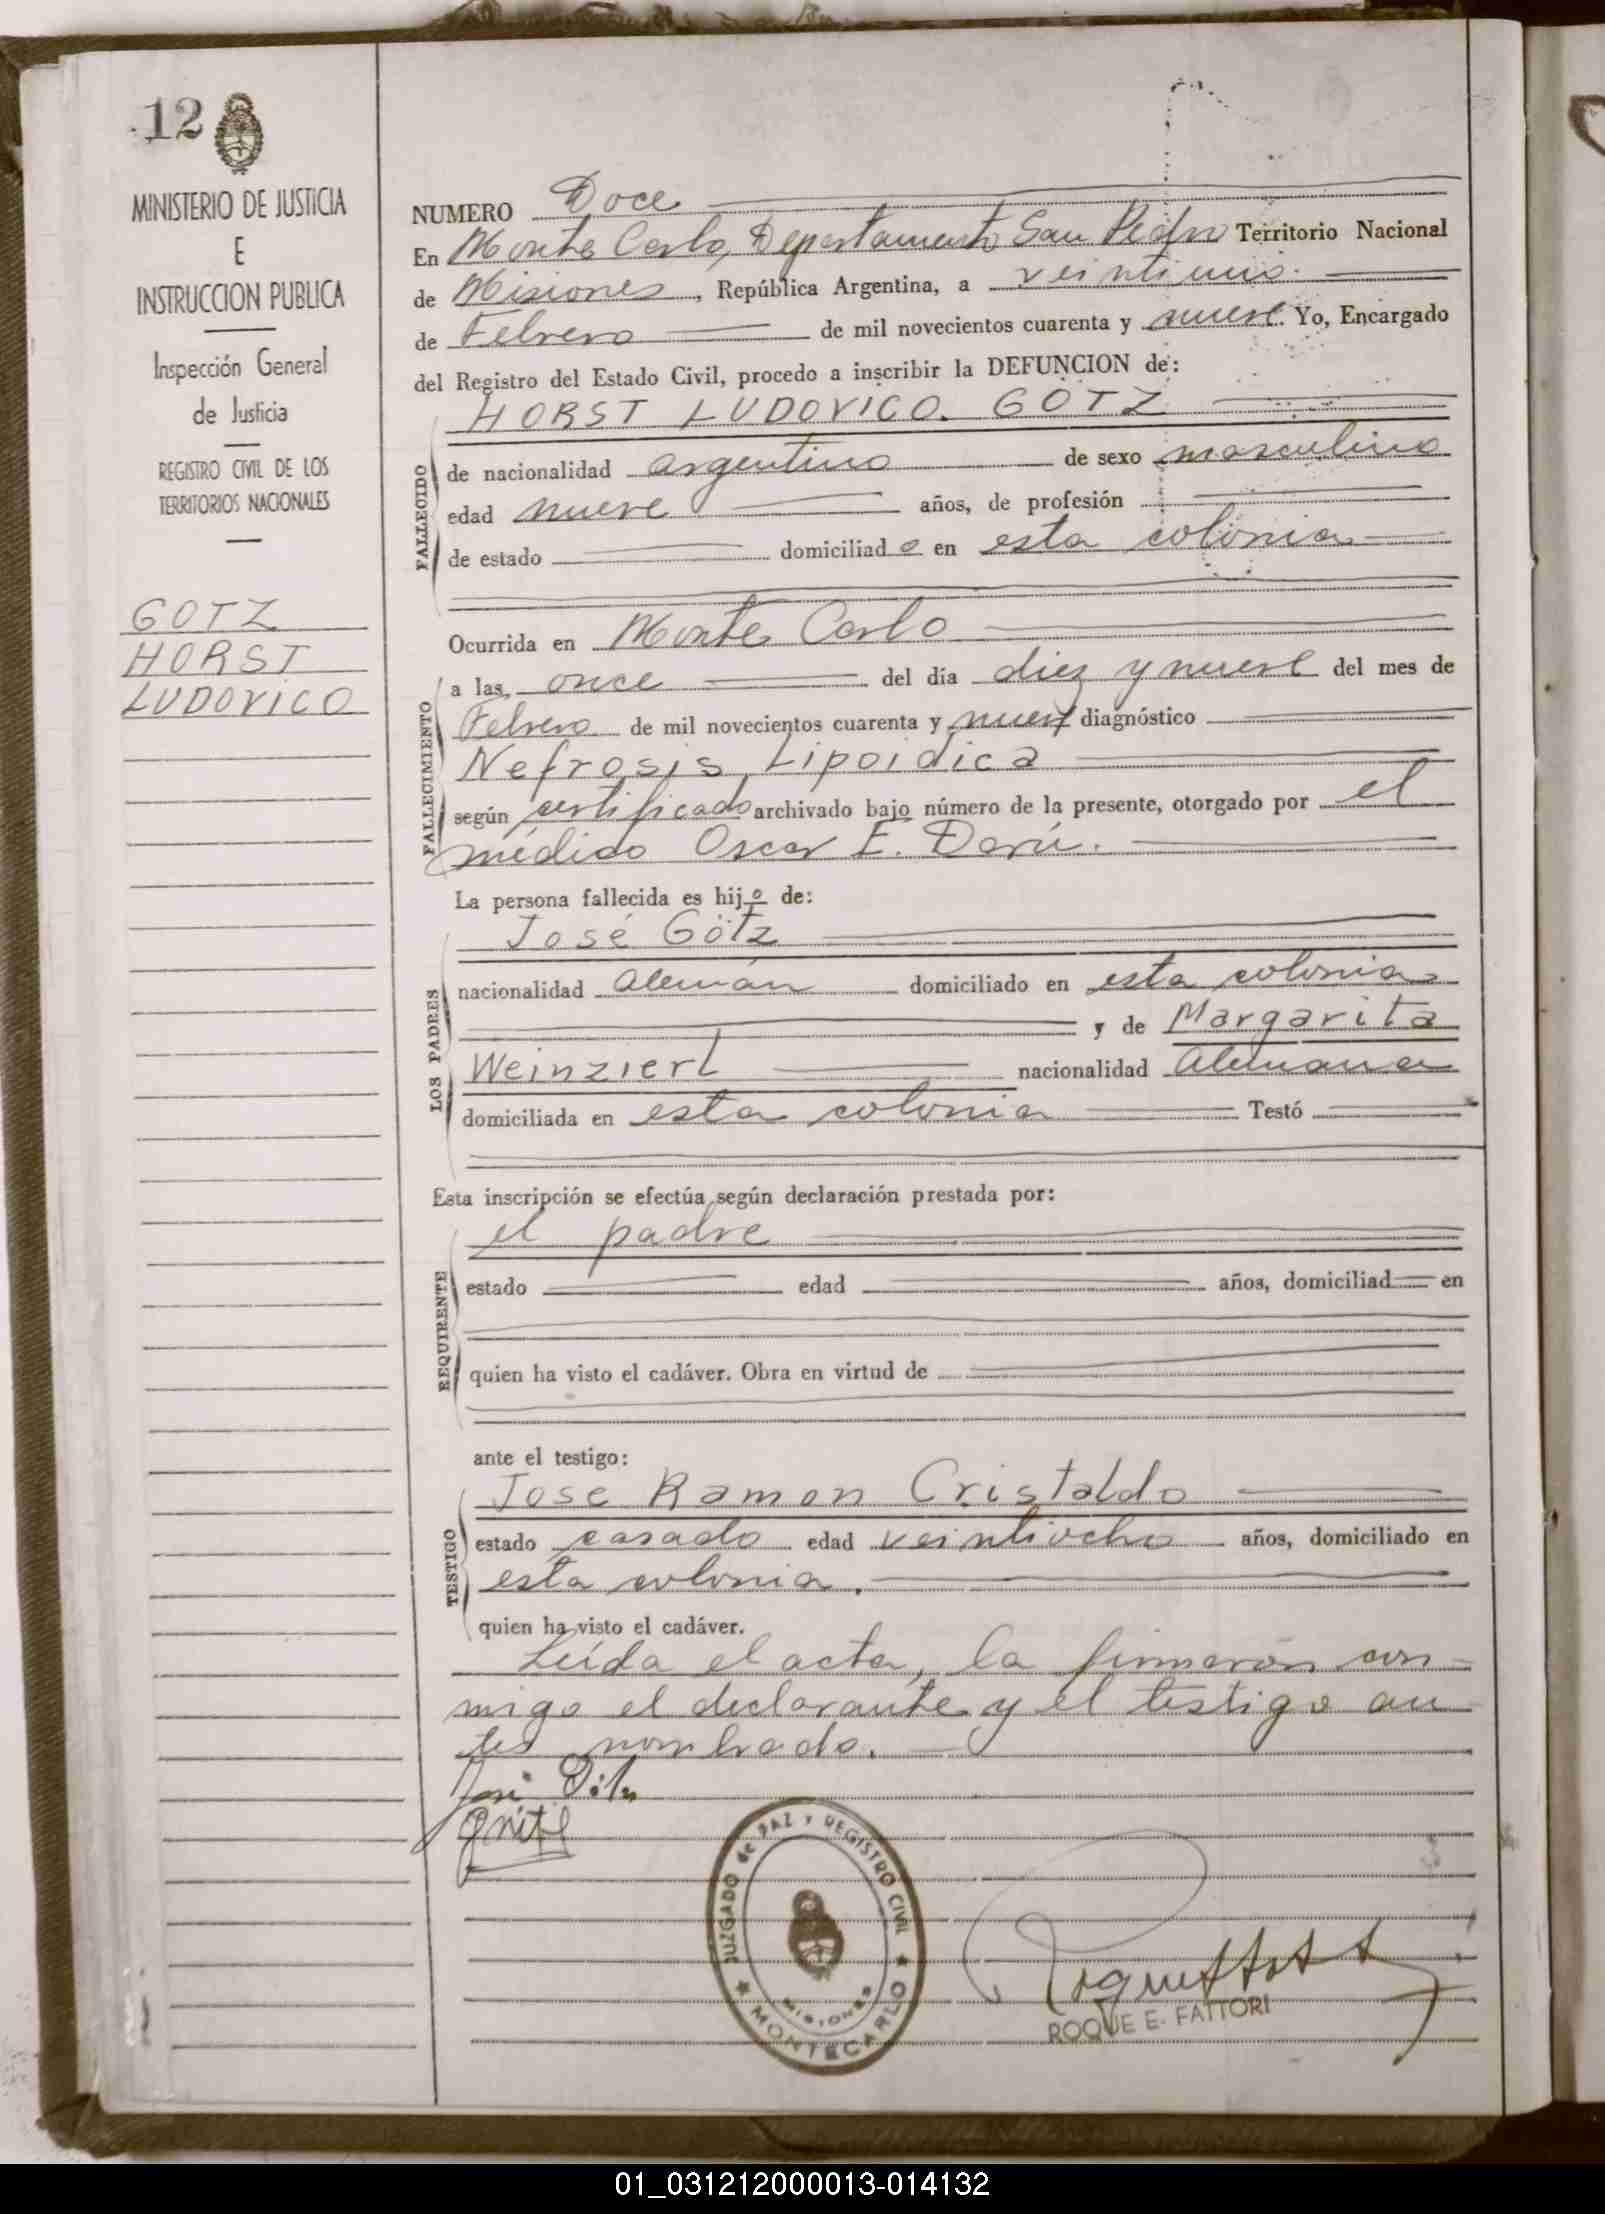 12
MINISTERIO DE JUSTICIA
E
INSTRUCCION PUBLICA
Inspección General
de Justicia
REGISTRO CIVIL DE LOS
TERRITORIOS NACIONALES
GOTZ
HORST
LUDOVICO
NUMERO Doce
En Monte Carlo, Departamento San Pedro Territorio Nacional
de Misiones, República Argentina, a veintiuno.
de Febrero de mil novecientos cuarenta y nueve. Yo, Encargado
del Registro del Estado Civil, procedo a inscribir la DEFUNCION de:
HORST LUDOVICO. GÖTZ
FALLECIDO
de nacionalidad argentino de sexo masculino
edad nueve años, de profesión
de estado domiciliado en esta colonia
Ocurrida en Monte Carlo
FALLECIMIENTO
a las, once del día diez y nueve del mes de
Febrero de mil novecientos cuarenta y nueve diagnóstico
Nefrosis Lipoidica
según certificado archivado bajo número de la presente, otorgado por el
médico Oscar E. Darú.
La persona fallecida es hijo de:
LOS PADRES
José Götz
nacionalidad Alemán domiciliado en esta colonia
y de Margarita
Weinzierl nacionalidad Alemana
domiciliada en esta colonia Testó
Esta inscripción se efectúa según declaración prestada por:
REQUIRENTE
el padre
estado edad años, domiciliad en
quien ha visto el cadáver. Obra en virtud de
ante el testigo:
TESTIGO
Jose Ramon Cristaldo
estado casado edad veintiocho años, domiciliado en
esta colonia.
quien ha visto el cadáver.
Leída el acta, la firmaron con-
migo el declarante y el testigo an
tes nombrado.
JUZGADO de PAZ Y REGISTRO CIVIL
MISIONES
MONTECARLO
ROQUE E. FATTORI
01_031212000013-014132